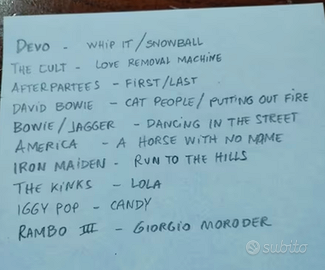 DEVO - WHIP IT/SNOWBALL
THE CULT - LOVE REMOVAL MACHINE
AFTERPARTEES - FIRST/LAST
DAVID BOWIE - CAT PEOPLE/PUTTING OUT FIRE
BOWIE/JAGGER - DANCING IN THE STREET
AMERICA - A HORSE WITH NO NAME
IRON MAIDEN - RUN TO THE HILLS
THE KINKS - LOLA
IGGY POP - CANDY
RAMBO III - GIORGIO MORODER
subito